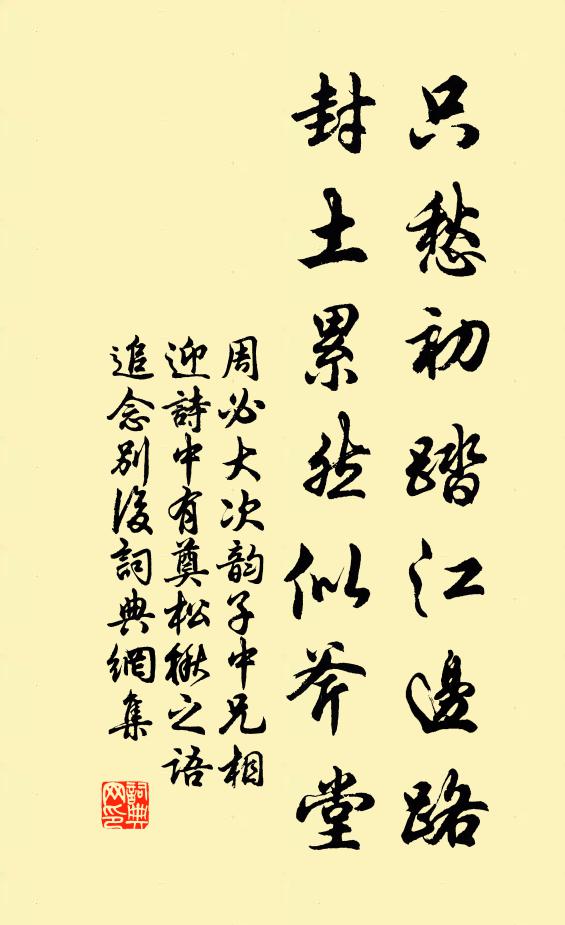 只愁初踏江邊路
封土累然似斧堂
周必大次韵子中兄相
迎詩中有奠松楸之語
追念别後詞典網集
詞典
网印